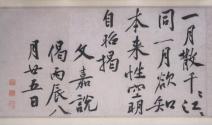 一月散千江〻〻
同一月欲知
本来性空明
自昭揭
文嘉說
偈丙辰八
月廿五日